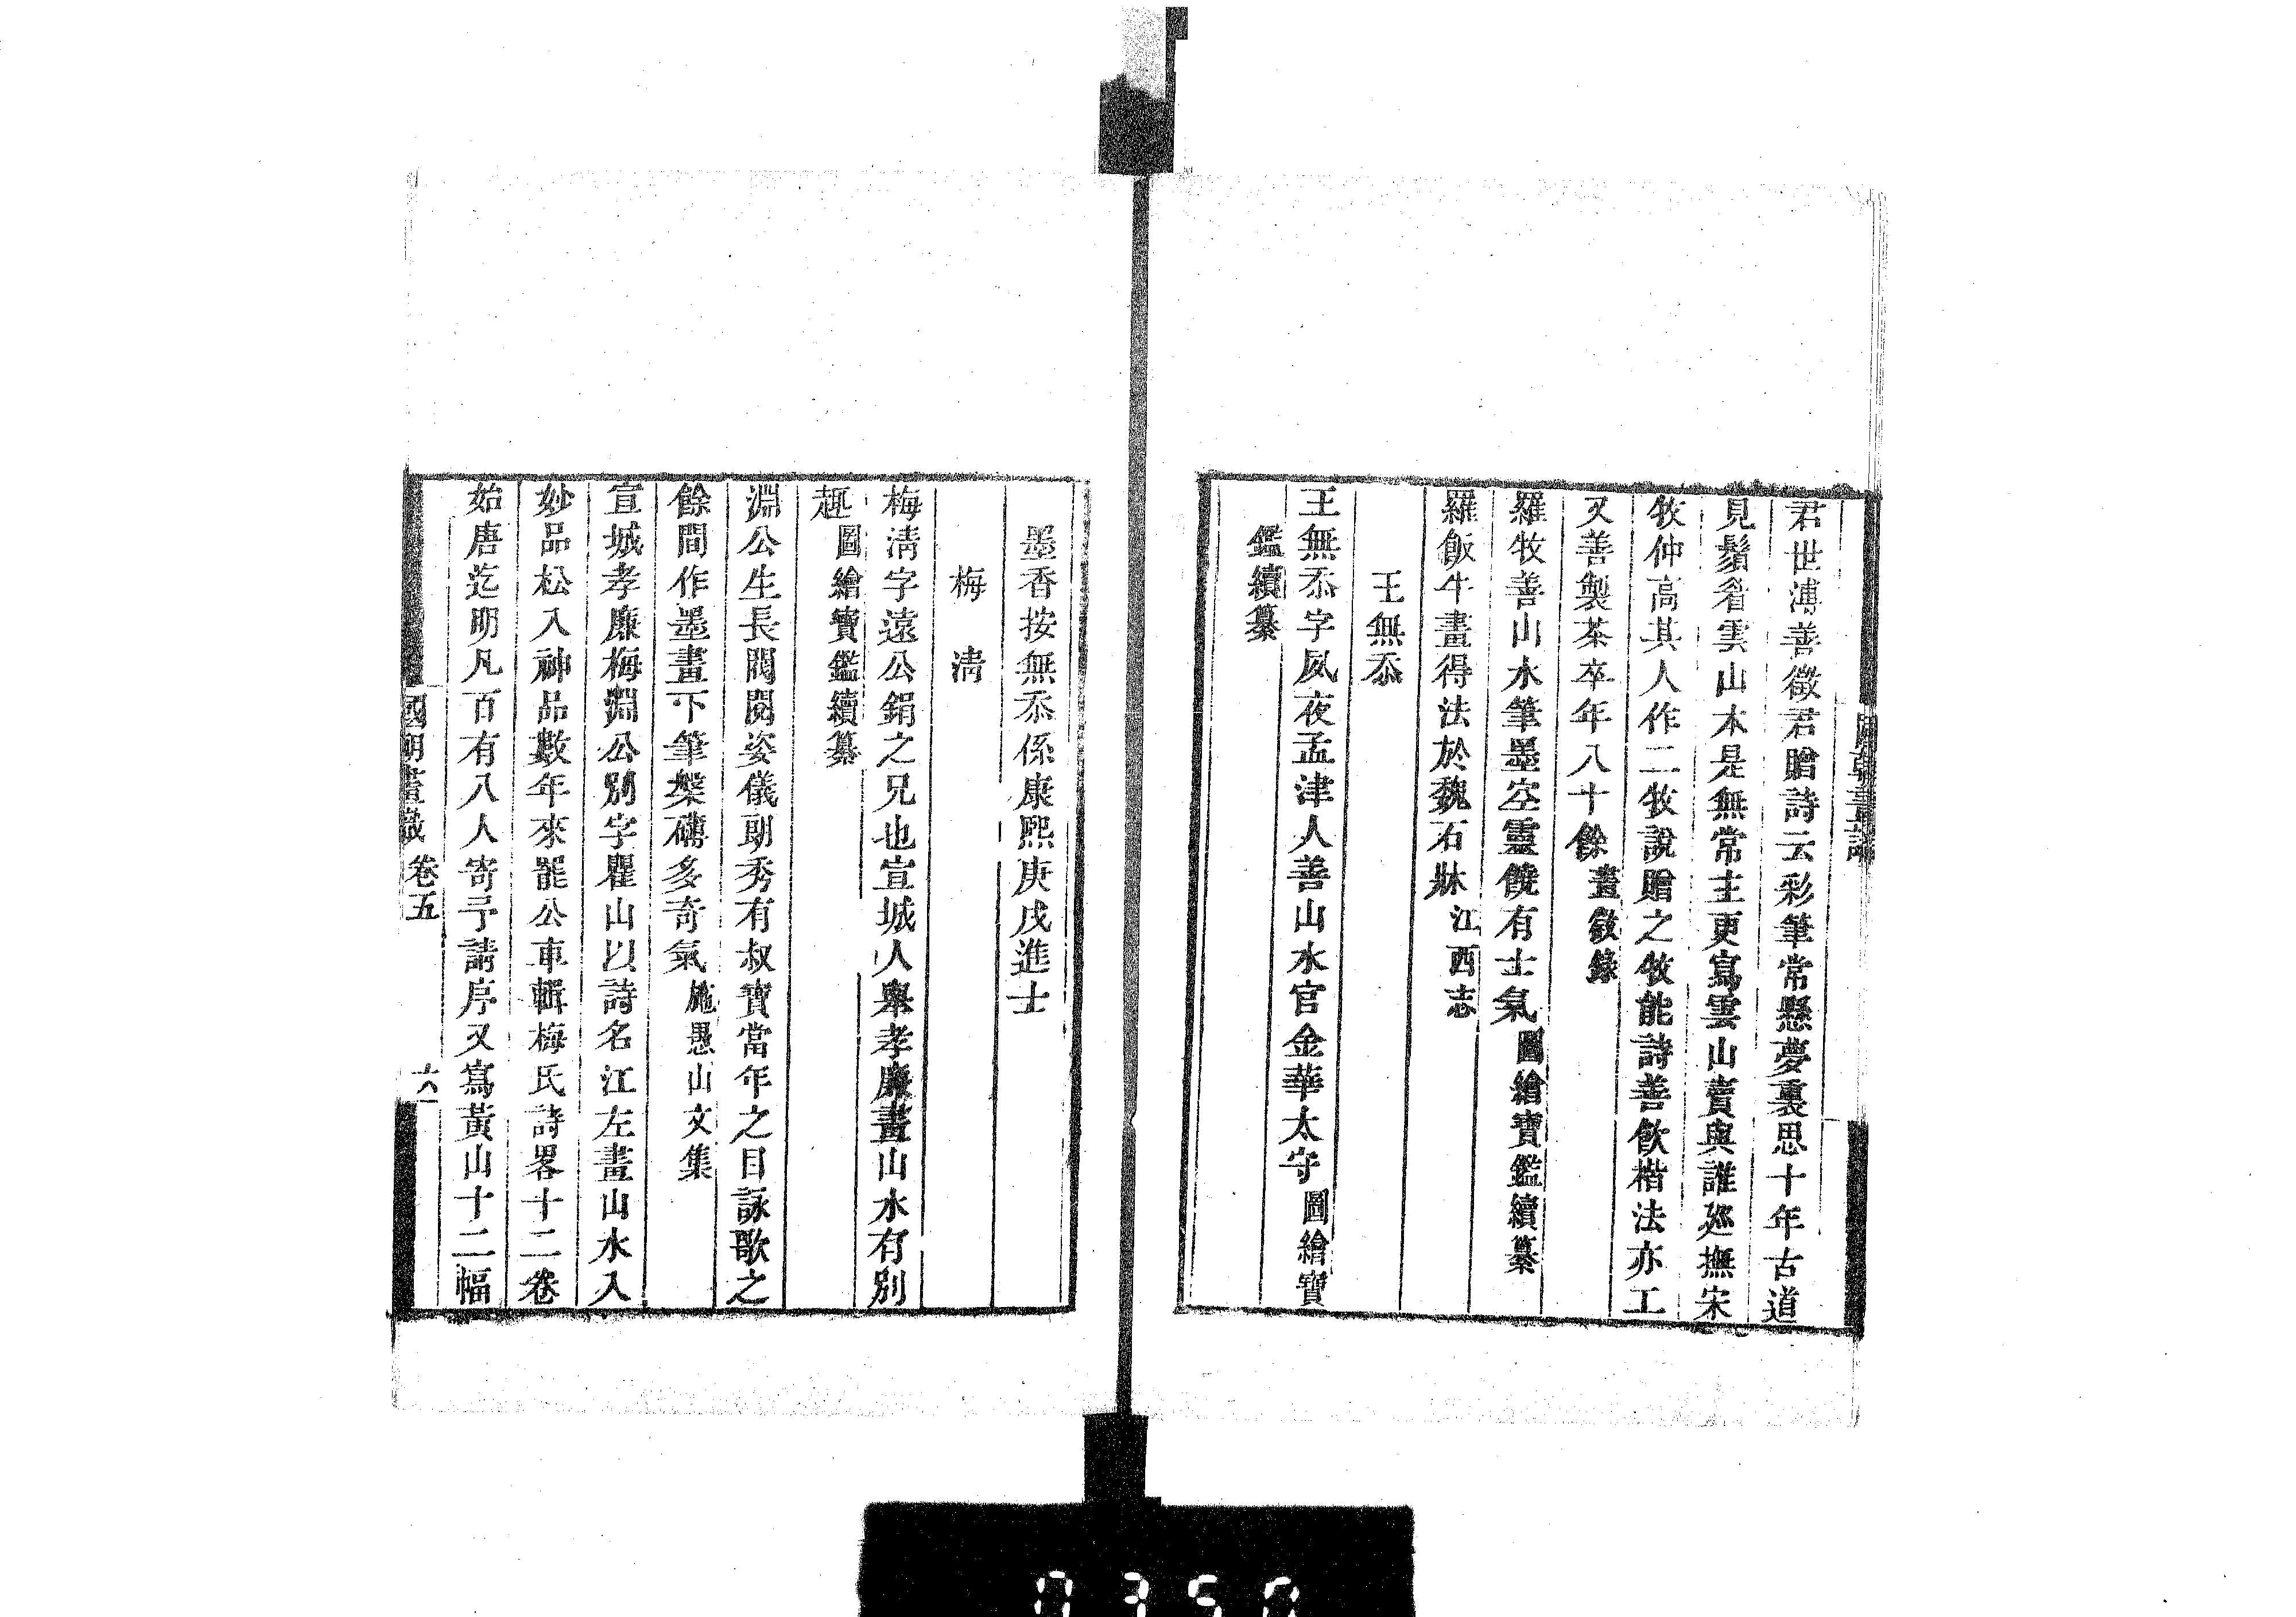 君世溥善徵君贈詩云彩筆常懸夢裏思十年古道
見鬚眉雲山本是無常主更寫雲山賣與誰廵撫宋
牧仲高其人作二牧說贈之牧能詩善飲楷法亦工
又善製茶卒年八十餘畫徵錄
羅牧善山水筆墨空靈饒有士氣圖繪寶鑑續纂
羅飯牛畫得法於魏石牀江西志
王無忝
王無忝字夙夜孟津人善山水官金華太守圖繪寶
鑑續纂
墨香按無忝係康熙庚戌進士
梅清
梅清字遠公鋗之兄也宣城人舉孝廉畫山水有別
趣圖繪寶鑑續纂
淵公生長閥閱姿儀朗秀有叔寶當年之目詠歌之
餘間作墨畫下筆槃礴多奇氣施愚山文集
宣城孝廉梅淵公別字瞿山以詩名江左畫山水入
妙品松入神品數年來罷公車輯梅氏詩畧十二卷
始唐迄明凡百有八人寄予請序又寫黃山十二幅
國朝畫識 卷五 六
0350